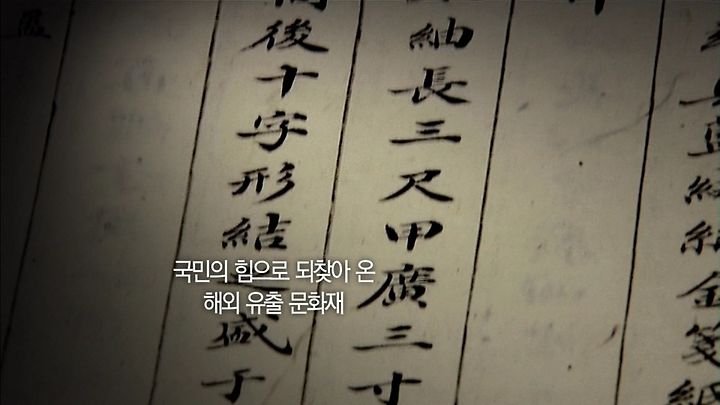 金箋紙
紬長三尺甲廣三寸
後十字形結之盛于
국민의 힘으로 되찾아 온
해외 유출 문화재